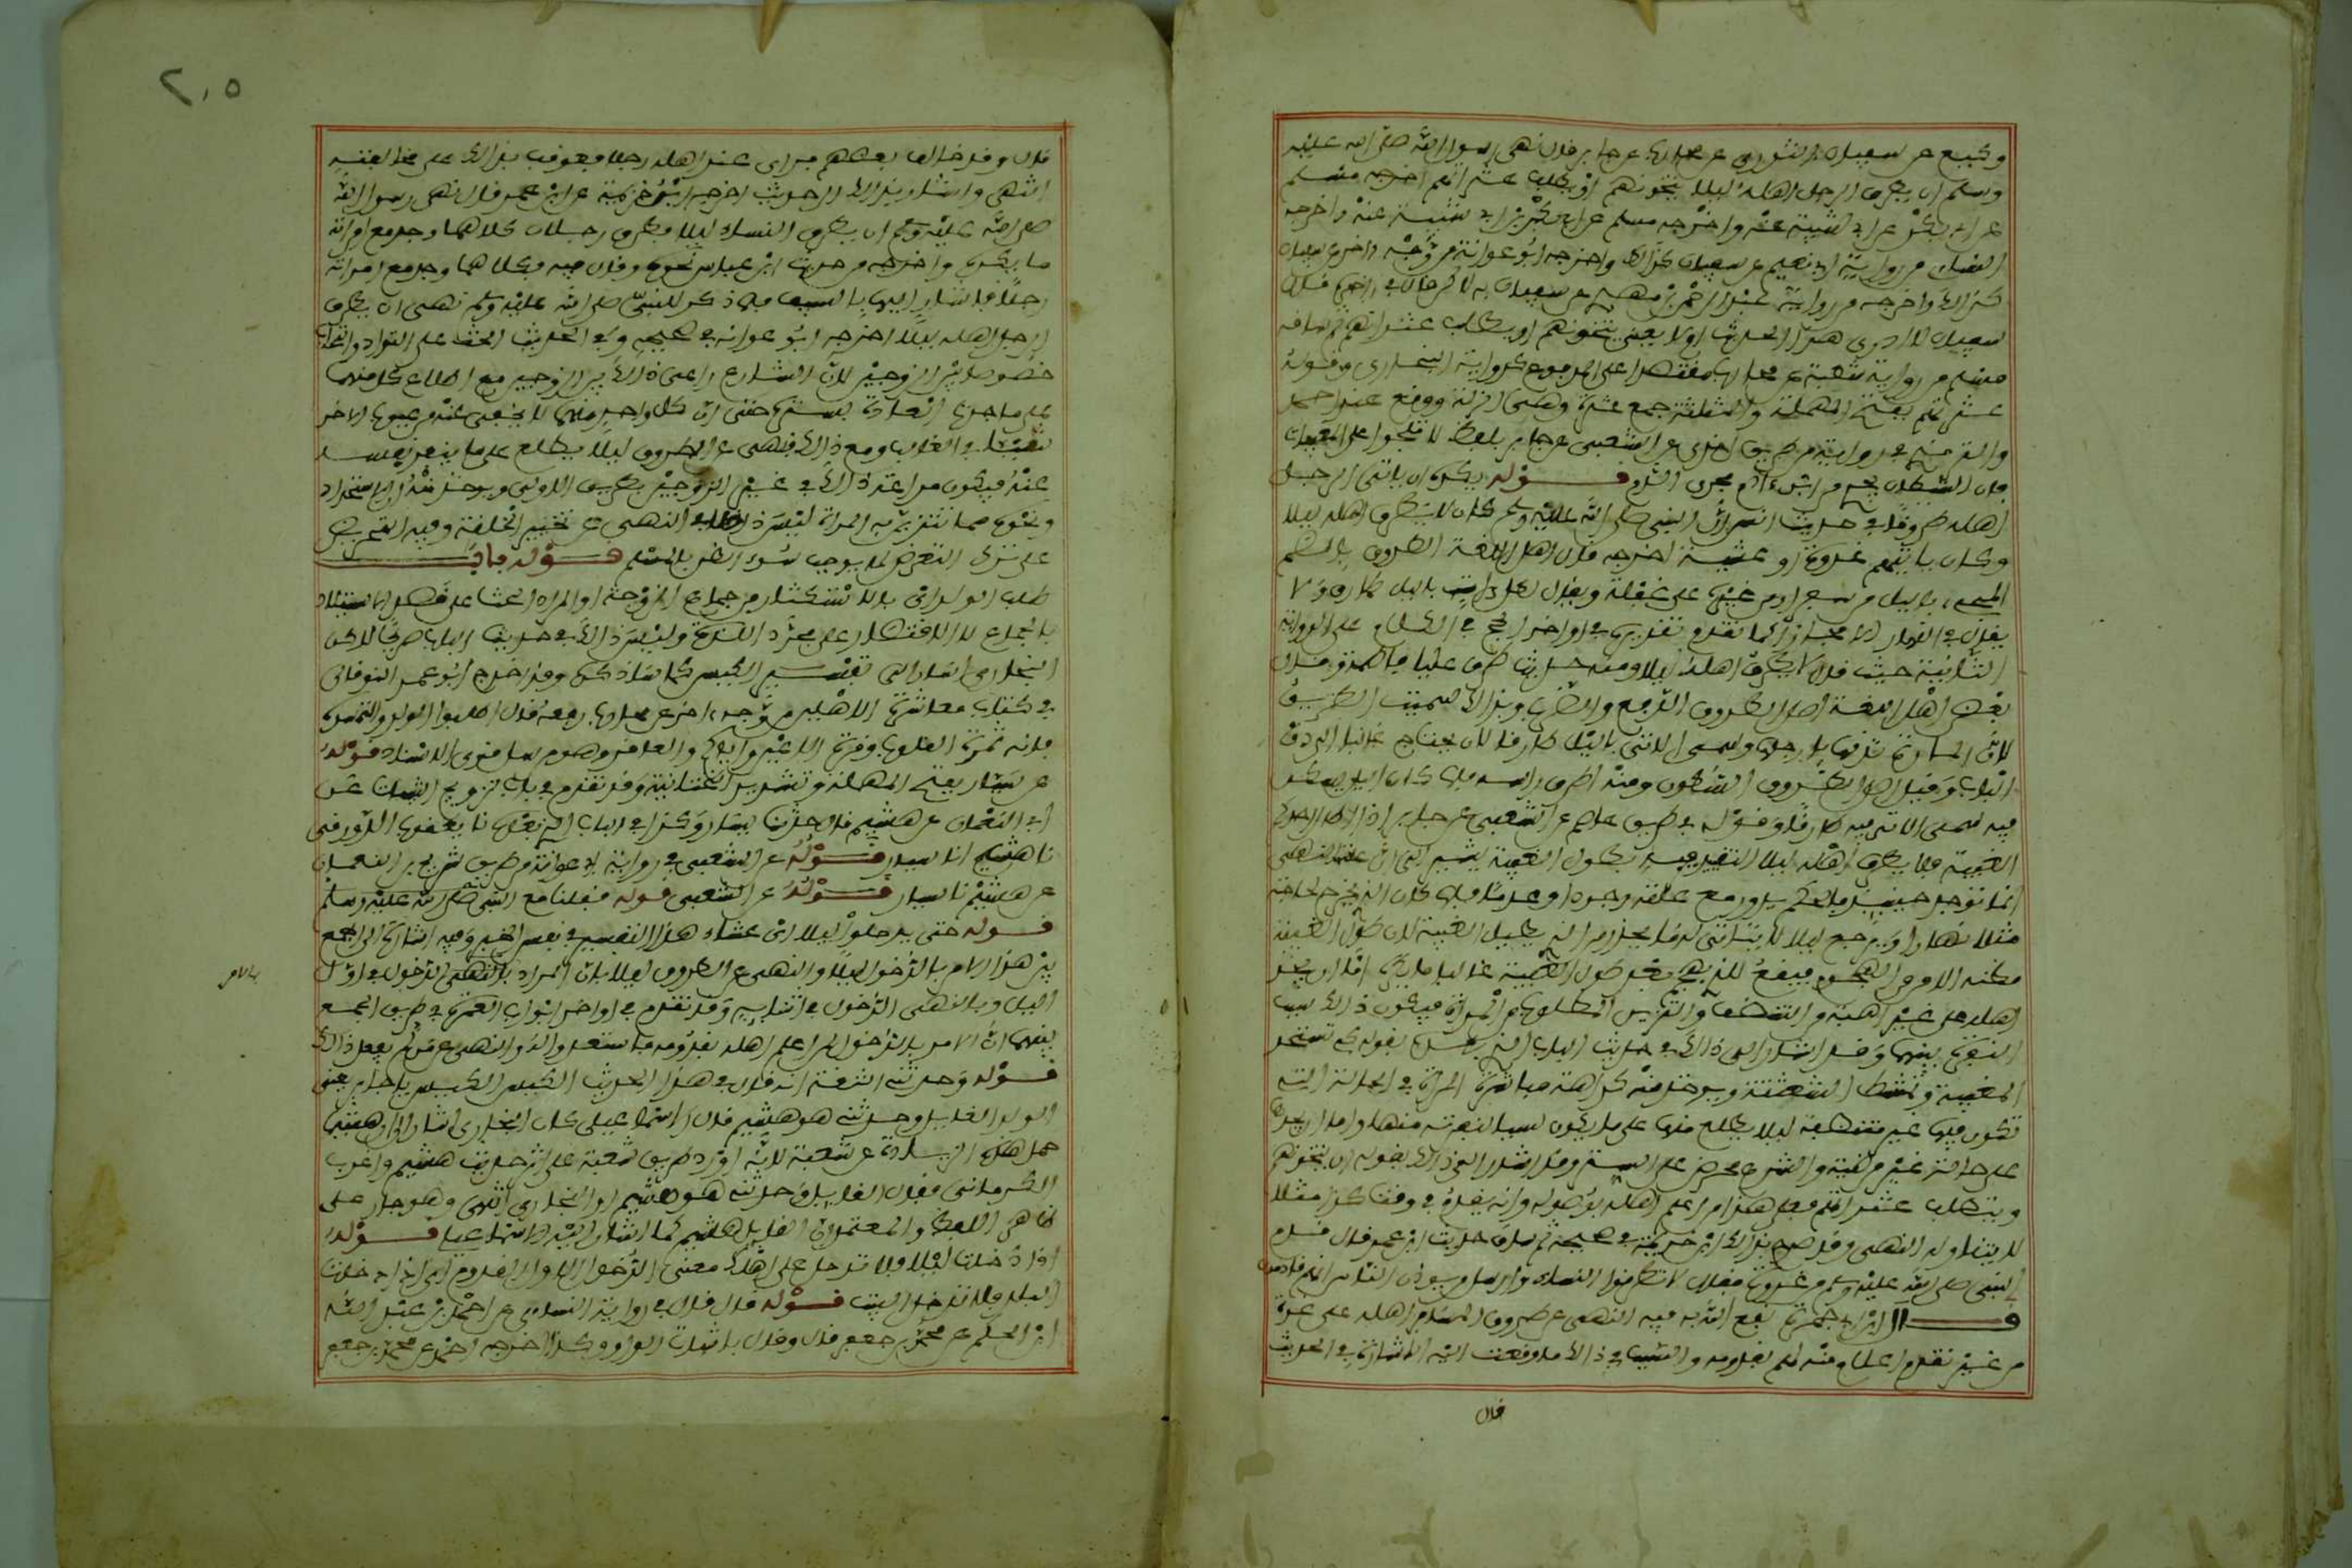 وكيع عن سفيان الثوري عن محارب عن جابر قال نهى رسول الله صلى الله عليه
وسلم ان يطرق الرجل اهله ليلا يتخونهم او يطلب عثراتهم اخرجه مسلم
عن ابي بكر بن ابي شيبة عنه واخرجه
النسائي من رواية ابي نعيم عن سفيان كذلك واخرجه ابو عوانة من وجه اخر عن سفيان
كذلك واخرجه من رواية عبد الرحمن بن مهدي عن سفيان به لاكن قال في اخره قال
سفيان لا ادري هذا في الحديث اولا يعني يتخونهم او يطلب عثراتهم ثم ساقه
مسلم من رواية شعبة عن محارب مقتصرا على المرفوع كرواية البخاري وقوله
عثراتهم بفتح المهملة والمثلثة جمع عثرة وهي الزلة ووقع عند احمد
والترمذي في رواية من طريق اخرى عن الشعبي عن جابر بلفظ لا تلجوا على المغيبات
فان الشيطان يجري من ابن ءادم مجرى الدم قوله يكره ان ياتي الرجل
اهله طروقا في حديث انس ان النبي صلى الله عليه وسلم كان لا يطرق اهله ليلا
وكان ياتيهم غدوة او عشية اخرجه قال اهل اللغة الطروق بالضم
المجيء بالليل من سفر او من غيره على غفلة ويقال لكل ءات بالليل طارق ولا
يقال في النهار الا مجازا كما تقدم تقريره في اواخر الحج في الكلام على الرواية
الثانية حيث قال لا يطرق اهله ليلا ومنه حديث طرق عليا وفاطمة وقال
بعض اهل اللغة اصل الطروق الدفع والضرب وبذلك سميت الطريق
لان المارة تدقها بارجلها وسمي الاتي بالليل طارقا لانه يحتاج غالبا الى دق
الباب وقيل اصل الطروق السكون ومنه اطرق راسه فلما كان الليل يسكن
فيه سمي الاتي فيه طارقا وقوله في طريق عاصم عن الشعبي عن جابر اذا اطال احدكم
الغيبة فلا يطرق اهله ليلا التقييد فيه بطول الغيبة يشير الى ان علة النهي
انما توجد حينئذ فالحكم يدور مع علته وجودا وعدما فلما كان الذي يخرج لحاجته
مثلا نهارا ويرجع ليلا لا يتاتى له ما يحذر من الذي يطيل الغيبة لان طول الغيبة
مظنة الامن من الهجوم فيقع للذي يهجم بعد طول الغيبة غالبا ما يكره اما ان يجد
اهله على غير اهبة من التنظف والتزين المطلوب من المراة فيكون ذلك سبب
النفرة بينهما وقد اشار الى ذلك في حديث الباب الذي بعده بقوله كي تستحد
المغيبة وتمتشط الشعثة ويوخذ منه كراهة مباشرة المراة في الحالة التي
تكون فيها غير متنظفة ليلا يطلع منها على ما يكون سببا لنفرته منها واما ان يجدها
على حالة غير مرضية والشرع محرض على الستر وقد اشار الى ذلك بقوله ان يتخونهم
ويتطلب عثراتهم فعلى هذا من اعلم اهله بوصوله وانه يقدم في وقت كذا مثلا
لا يتناوله النهي وقد صرح بذلك ابن خزيمة في صحيحه ثم ساق حديث ابن عمر قال قدم
النبي صلى الله عليه وسلم من غزوة فقال لا تطرقوا النساء وارسل من يوذن الناس انهم قادمون
قال ابن ابي جمرة نفع الله به فيه النهي عن طروق المسافر اهله على غرة
من غير تقدم اعلام منه لهم بقدومه والسبب في ذلك ما وقعت اليه الاشارة في الحديث
قال
٢٠٥
قال وقد خالف بعضهم فراى عند اهله رجلا فعوقب بذلك على مخالفته
انتهى واشار بذلك الى حديث اخرجه ابن خزيمة عن ابن عمر قال نهى رسول الله
صلى الله عليه وسلم ان يطرق النساء ليلا فطرق رجلان كلاهما وجد مع امراته
ما يكره واخرجه من حديث ابن عباس نحوه وقال فيه فكلاهما وجد مع امراته
رجلا فاشار اليها بالسيف فلما ذكر للنبي صلى الله عليه وسلم نهى ان يطرق
الرجل اهله ليلا اخرجه ابو عوانة في صحيحه وفي الحديث الحث على التواد والتحاب
خصوصا بين الزوجين لان الشارع راعى ذلك بين الزوجين مع اطلاع كل منهما
على ما جرت العادة بستره حتى ان كل واحد منهما لا يخفى عنه من عيوب الاخر
شيء في الغالب ومع ذلك فنهى عن الطروق ليلا يطلع على ما ينفر نفسه
عنه فيكون مراعاة ذلك في غير الزوجين بطريق الاولى ويوخذ منه ان الاستحداد
ونحوه مما تتزين به المراة ليس داخلا في النهي عن تغيير الخلقة وفيه التحريض
على ترك التعرض لما يوجب سوء الظن بالمسلم قوله باب
طلب الولد اي بالاستكثار من جماع الزوجة او المراد الحث على قصد الاستيلاد
بالجماع لا الاقتصار على مجرد اللذة وليس ذلك في حديث الباب صريحا لاكن
البخاري اشار الى تفسير الكيس كما ساذكره وقد اخرج ابو عمر النوقاني
في كتاب معاشرة الاهلين من وجه ءاخر عن محارب رفعه قال اطلبوا الولد والتمسوه
فانه ثمرة القلوب وقرة الاعين واياكم والعاقر وهو مرسل قوي الاسناد قوله
عن سيار بفتح المهملة وتشديد التحتانية وقد تقدم في باب تزويج الثيبات عن
ابي النعمان عن هشيم قال حدثنا سيار وكذا في الباب الذي بعدها نا يعقوب الدورقي
نا هشيم انا سيار قوله عن الشعبي في رواية ابي عوانة من طريق شريح بن النعمان
عن هشيم نا سيار قوله عن الشعبي قوله قفلنا مع النبي صلى الله عليه وسلم
قوله حتى تدخلوا ليلا اي عشاء هذا التفسير في نفس الخبر وفيه اشارة الى الجمع
بين هذا الامر بالدخول ليلا والنهي عن الطروق ليلا بان المراد بالامر الدخول في اول
الليل وبالنهي الدخول في اثنايه وقد تقدم في اواخر ابواب العمرة في طريق الجمع
بينهما ان الامر بالدخول لمن اعلم اهله بقدومه فاستعدوا له والنهي عن من لم يفعل ذلك
قوله وحدثني الثقة انه قال في هذا الحديث الكيس الكيس يا جابر يعني
الولد القايل وحدثني هو هشيم قال الاسماعيلي كان البخاري اشار الى ان هشيما
حمل هذه الزيادة عن شعبة لانه اورد طريق شعبة على اثر حديث هشيم واغرب
الكرماني فقال القايل وحدثني هو هشيم او البخاري انتهى وهو جار على
ظاهر اللفظ والمعتمد ان القايل هشيم كما اشار اليه الاسماعيلي قوله
اذا دخلت ليلا فلا تدخل على اهلك معنى الدخول الاول القدوم اي اذا دخلت
البلد فلا تدخل البيت قوله قال قال في رواية النسائي عن احمد بن عبد الله
ابن الحكم عن محمد بن جعفر قال وقال باثبات الواو وكذا اخرجه احمد عن محمد بن جعفر
بالامر